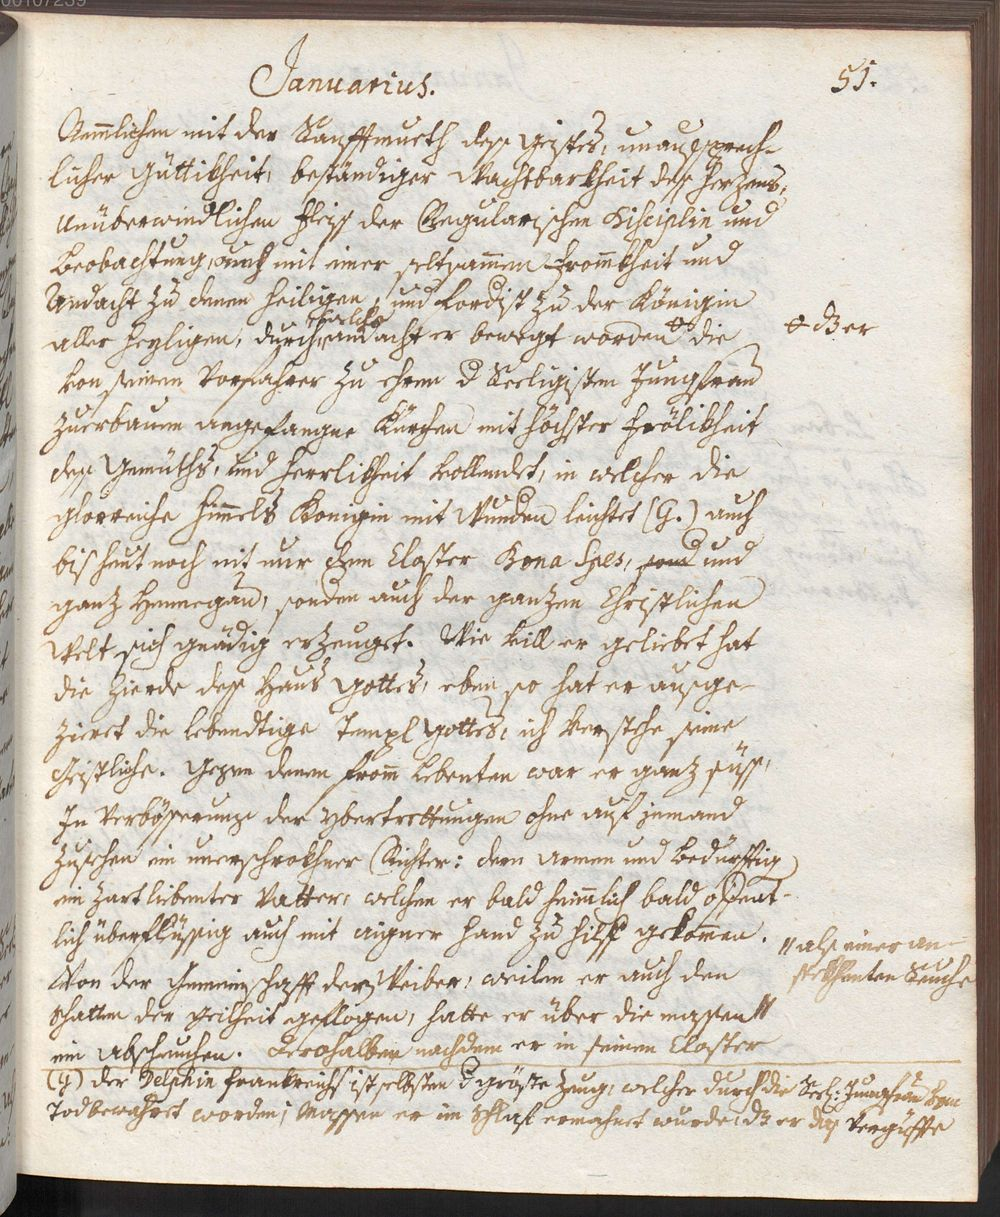 00107239
Januarius.
51.
Nemlichen mit der Sanfftmueth dess Geistes, unaussprech-
licher Güttikheit, beständiger Wachtbarkheit dess Herzens,
Unüberwindlichen fleiss der Regularischen Disciplin und
Beobachtung, auch mit einer seltsammen Frommkheit und
Andacht zu denen heiligen, und fordist zu der Königin
aller heyligen, durch welche andacht er bewegt worden die
+ dz er
von seinem Vorfahrer zu ehren d Seeligisten Jungfrau
zuerbauen angefangne Kürchen mit höchster frölikheit
dess Gemüths, und herrlikheit vollendet, in welcher die
glorreiche himmels Königin mit Wunden leichtet (G.) auch
bis heut noch nit nur dem Closter Bona Spes, und
ganz Hennegau, sonder auch der ganzen Christlichen
Welt sich gnädig erzeuget. Wie vill er geliebet hat
die Zierde dess Haus Gottes, eben so hat er ausge-
zieret die lebendtige Templ Gottes, ich verstehe seine
Geistliche. Gegen denen fromm lebenten war er ganz süss,
In Verbösserung der ybertrettungen ohne auf jemand
zusehen ein unerschrokhner Richter: dem Armen und Bedürfftig
ein zartliebenter Vatter, welchen er bald heimlich bald offent-
lich überflüssig auch mit aigner hand zu hilff gekommen.
Von der Gemeinschafft der Weiber, weilen er auch den
schatten der geilheit geflogen, hatte er über die massen //
// als einer an-
stekhenten Seuche
ein Abscheuchen. Derohalben nachdem er in seinen Closter
(G) der Delphin Frankreichs ist selbsten d gröste Zeug, welcher durch die Seel: Jungfrau vom
Tod bewahret worden; Massen er im Schlaf ermahnet wurde, dz er das Vergüffte